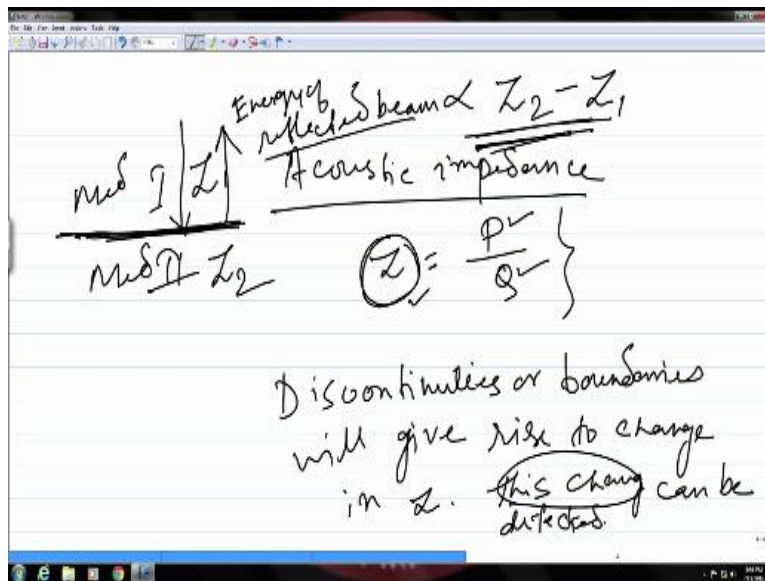 Energy of
reflected beam ∝ Z2 - Z1
Acoustic impedance
Med I Z1
Med II Z2
Z = P / Q }
Discontinuties or boundaries
will give rise to change
in Z. this chang can be
ditected.